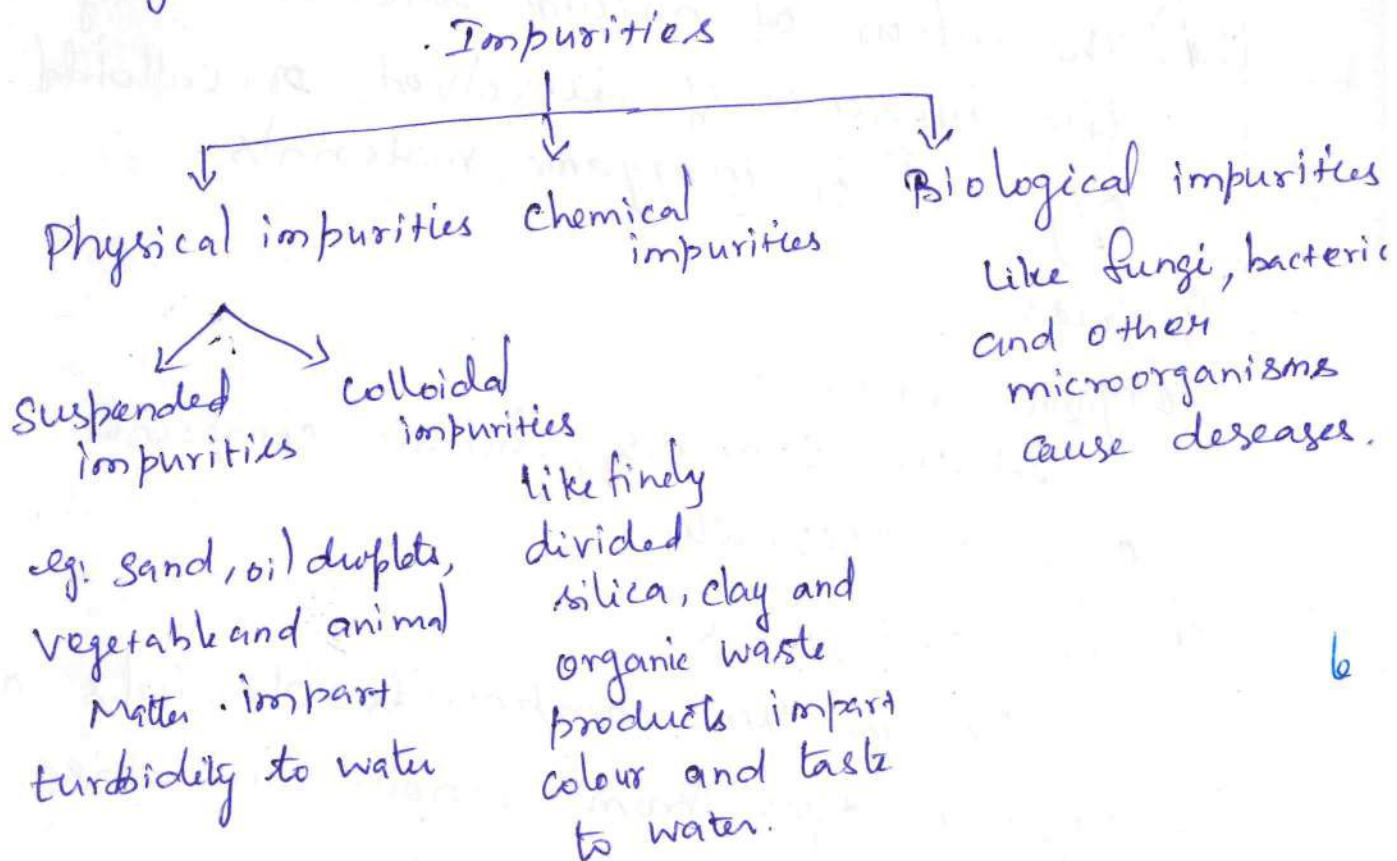 Impurities
Physical impurities
Chemical
impurities
Biological impurities
like fungi, bacteric
and other
microorganisms
cause deseases.
Suspended
impurities
Colloidal
impurities
eg: sand, oil droplets,
vegetable and animal
Matter . impart
turbidity to water
like finely
divided
silica, clay and
organic waste
products impart
colour and taste
to water.
6